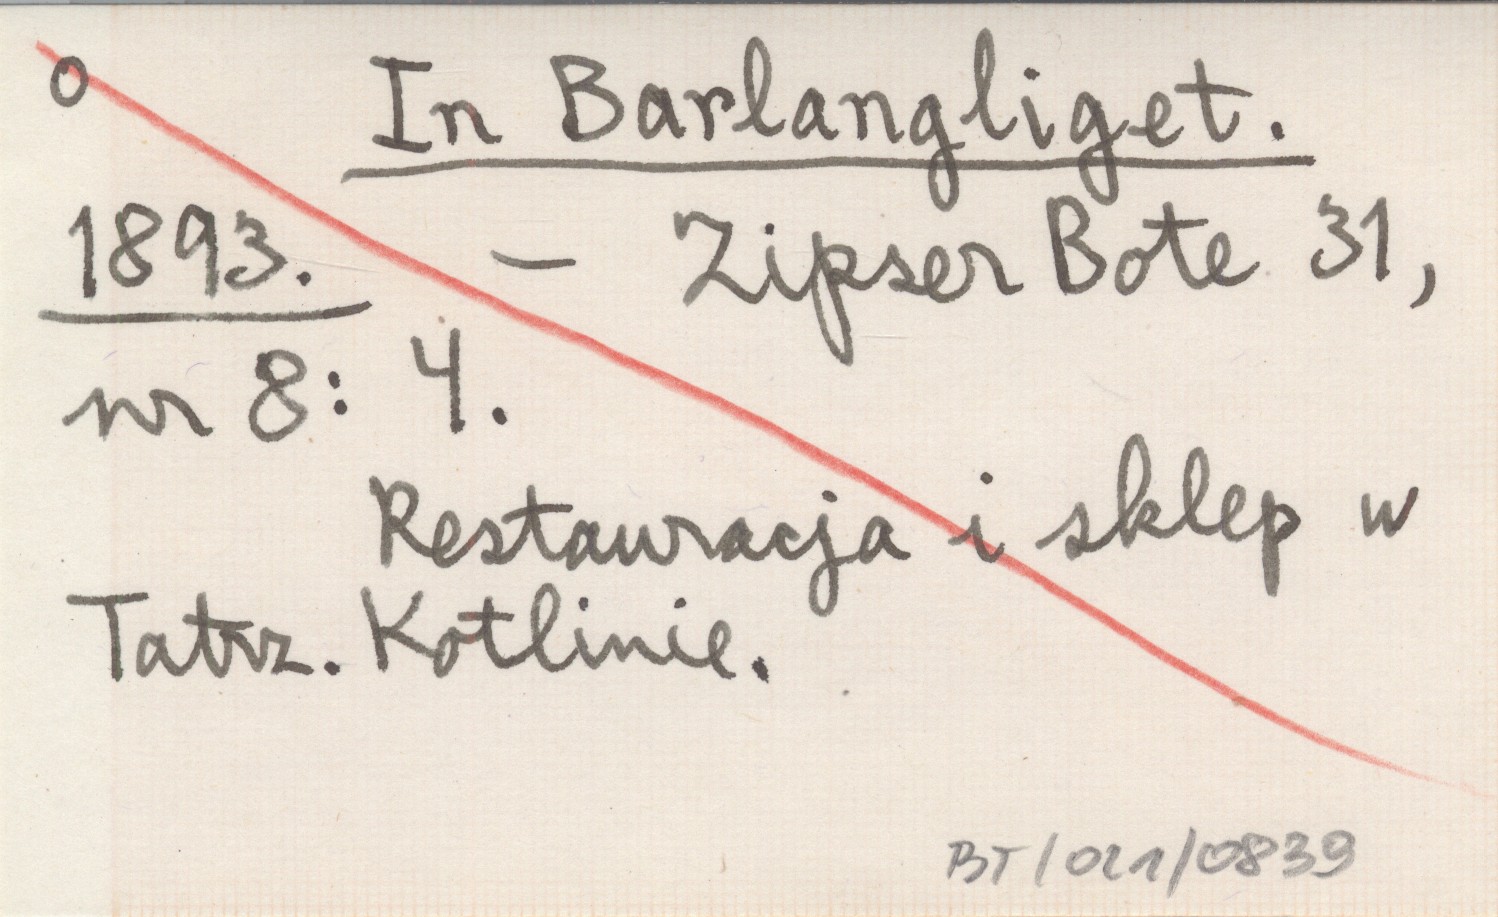 o In Barlangliget.
1893. – Zipser Bote 31,
nr 8: 4.
Restauracja i sklep w
Tatrz. Kotlinie.
BT/021/0839